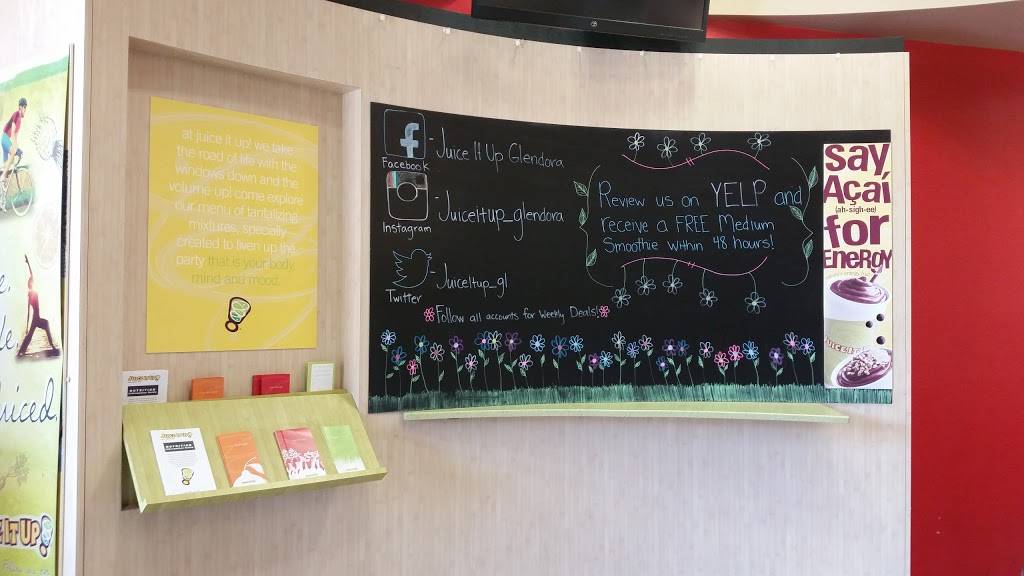 at juice it up! we take
the road of life with the
windows down and the
volume up! come explore
our menu of tantalizing
mixtures, specially
created to liven up the
party that is your body,
mind and mood.
f - Juice It Up Glendora
Facebook
- Juiceitup_glendora
Instagram
- Juiceitup_gl
Twitter
Follow all accounts for Weekly Deals!
Review us on YELP and
receive a FREE Medium
Smoothie within 48 hours!
say
Açaí
(ah-sigh-ee)
for
Energy
JUICE IT UP
NUTRITION
NUTRITION
uiced.
E IT UP!